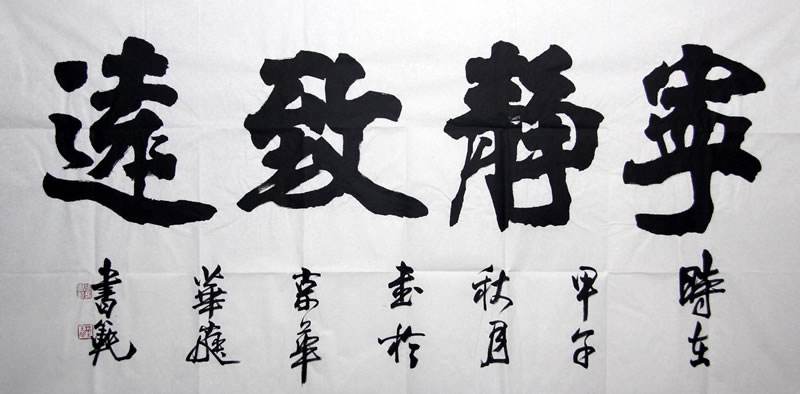 寧靜致遠
時在
甲午
秋月
書於
京華
華
書範